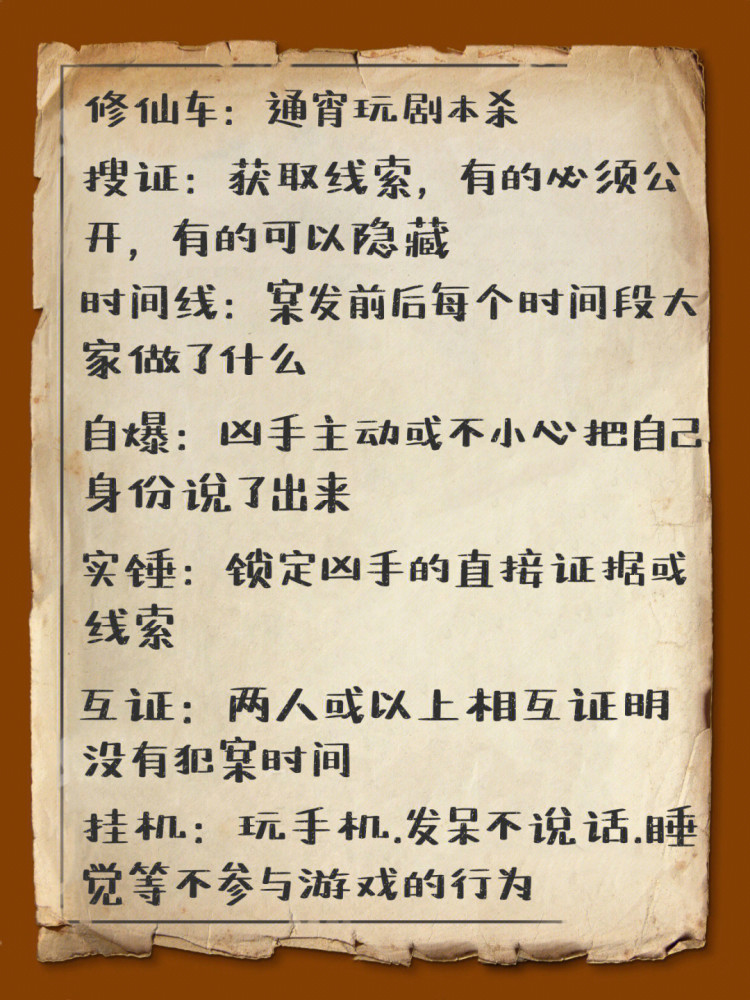 修仙车：通宵玩剧本杀
搜证：获取线索，有的必须公
开，有的可以隐藏
时间线：案发前后每个时间段大
家做了什么
自爆：凶手主动或不小心把自己
身份说了出来
实锤：锁定凶手的直接证据或
线索
互证：两人或以上相互证明
没有犯案时间
挂机：玩手机.发呆不说话.睡
觉等不参与游戏的行为